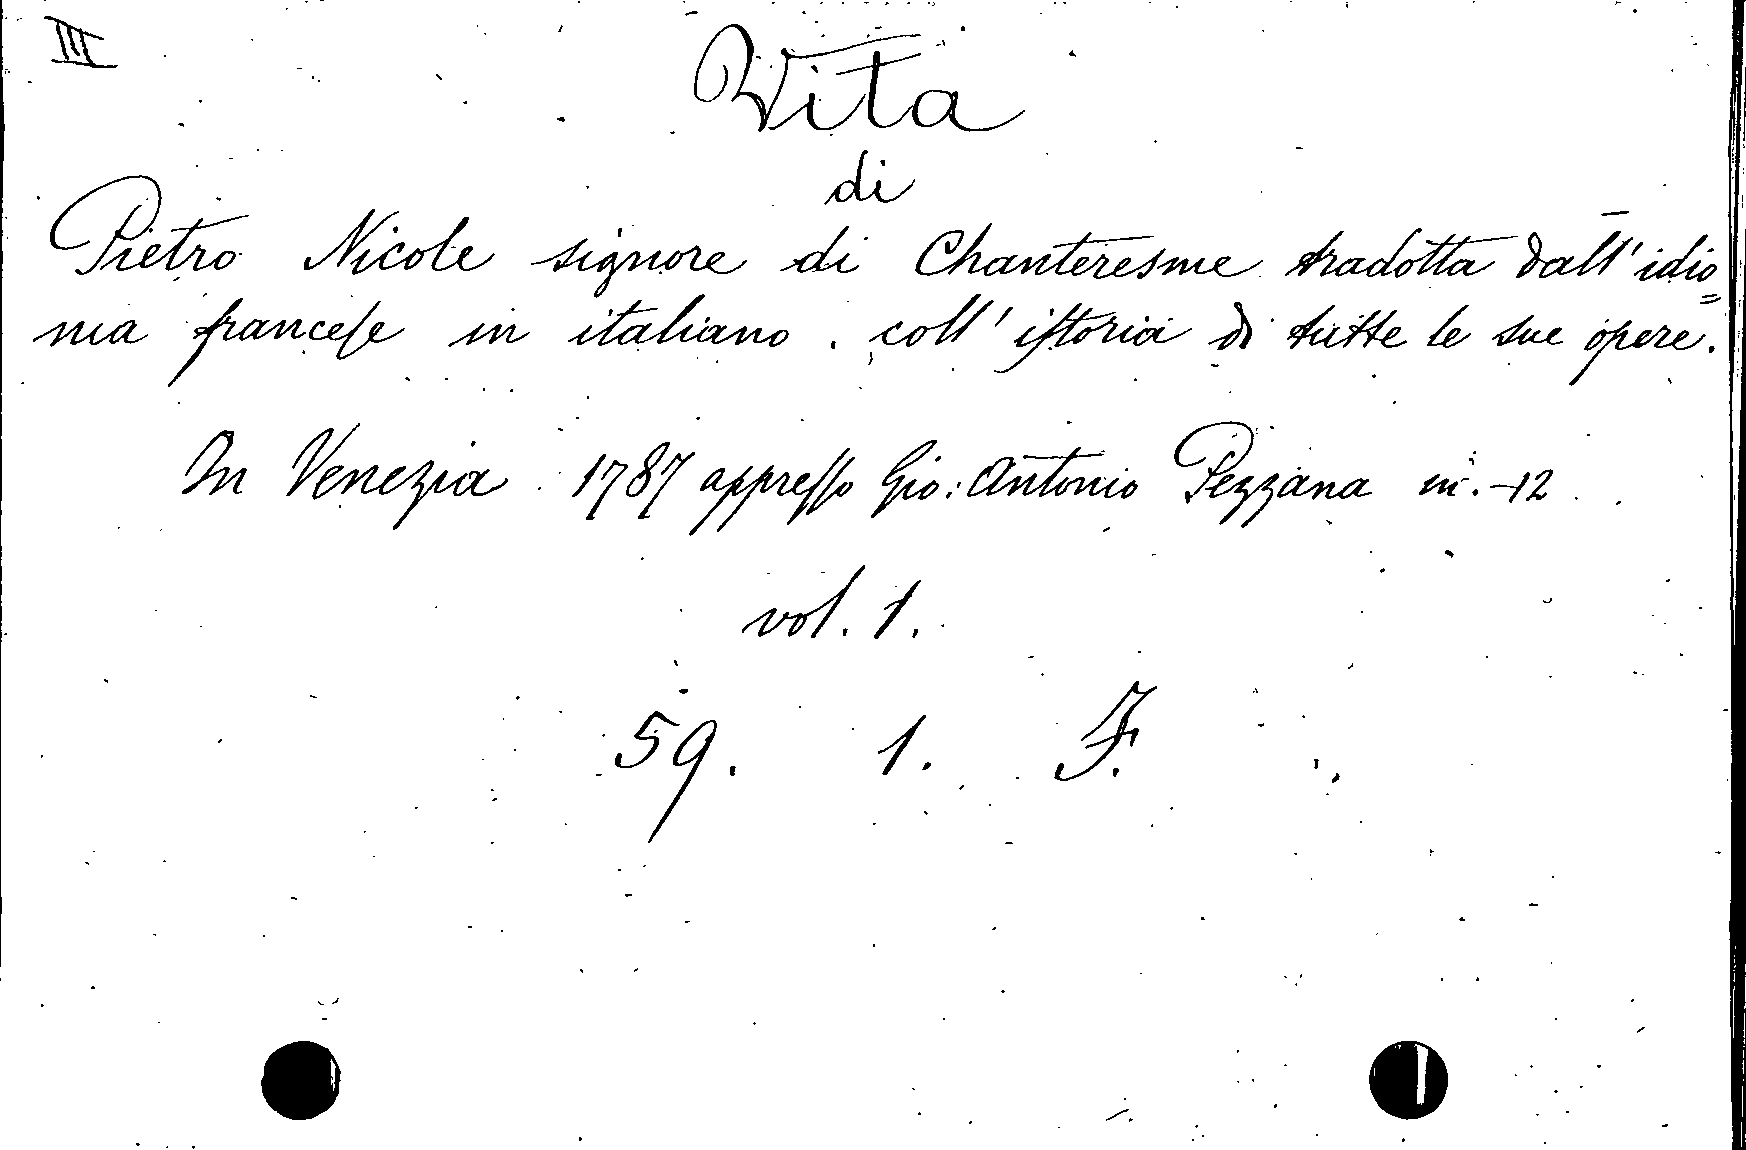 III
Vita
di
Pietro Nicole signore di Chanteresme tradotta dall'idio=
ma franceſe in italiano. coll' iſtoria di tutte le sue opere.
In Venezia 1787 appreſſo Gio: Antonio Pezzana in.-12
vol. 1.
59. 1. F.